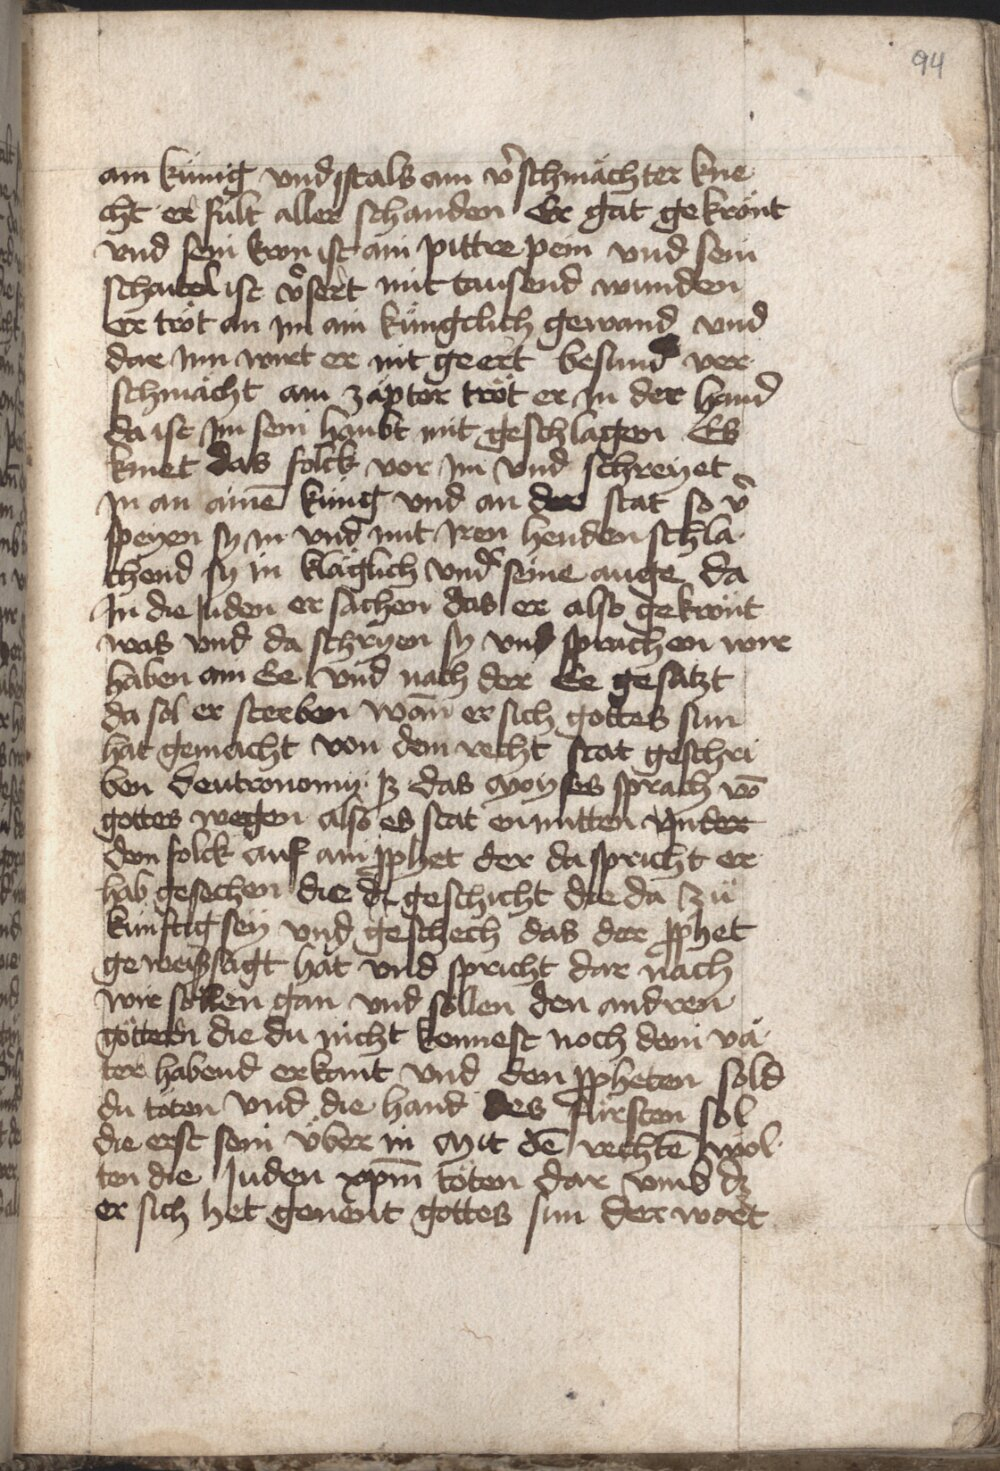 94
ain künig und ist als ain v̾schmächter kne
cht er fült aller schanden Er gat gekrönt
vnd sein kron ist ain pittre pein vnd sein
schaitel ist v̾sert mit tausend wunden
Er tröt an im ain künglich gewand vnd
dar inn wirt er nit geert besund ver
schmächt ain zäpter tröt er in der hand
da ist im sein houbt mit geschlagen Es
kniet das folck vor im vnd schreyet
in an ainē küng vnd an der stat so v̾
speyen sy in vnd mit iren henden schla
chend sy in kläglich vnd̾ seine auge da
In die Juden er sachen das er also gekrönt
was vnd da schryen sy vnd sprachen wir
haben ain Ee vnd nach der Ee gesatzt
da sol er sterben wan̄ er sich gottes sun
hat gemacht von dem recht stat geschri
ben deutronomij das Moyses sprach vō
gottes wegen also es stat enmitten vnder
dem folck auf ain ꝓphet der da spricht er
hab gesechen die geschicht die da zů
künftig sey vnd geschech das der ꝓphet
geweissagt hat vnd spricht dar nach
wir söllen gan vnd söllen den andren
göttern die du nicht kennest noch dein vä
ter habend erkant vnd den ꝓpheten sold
du töten vnd die hand des fürsten sol
die erst sein über in Mit dē rechtē wol
ten die Juden xp̄m töten dar vmb dz
er sich het genent gottes sun der wort